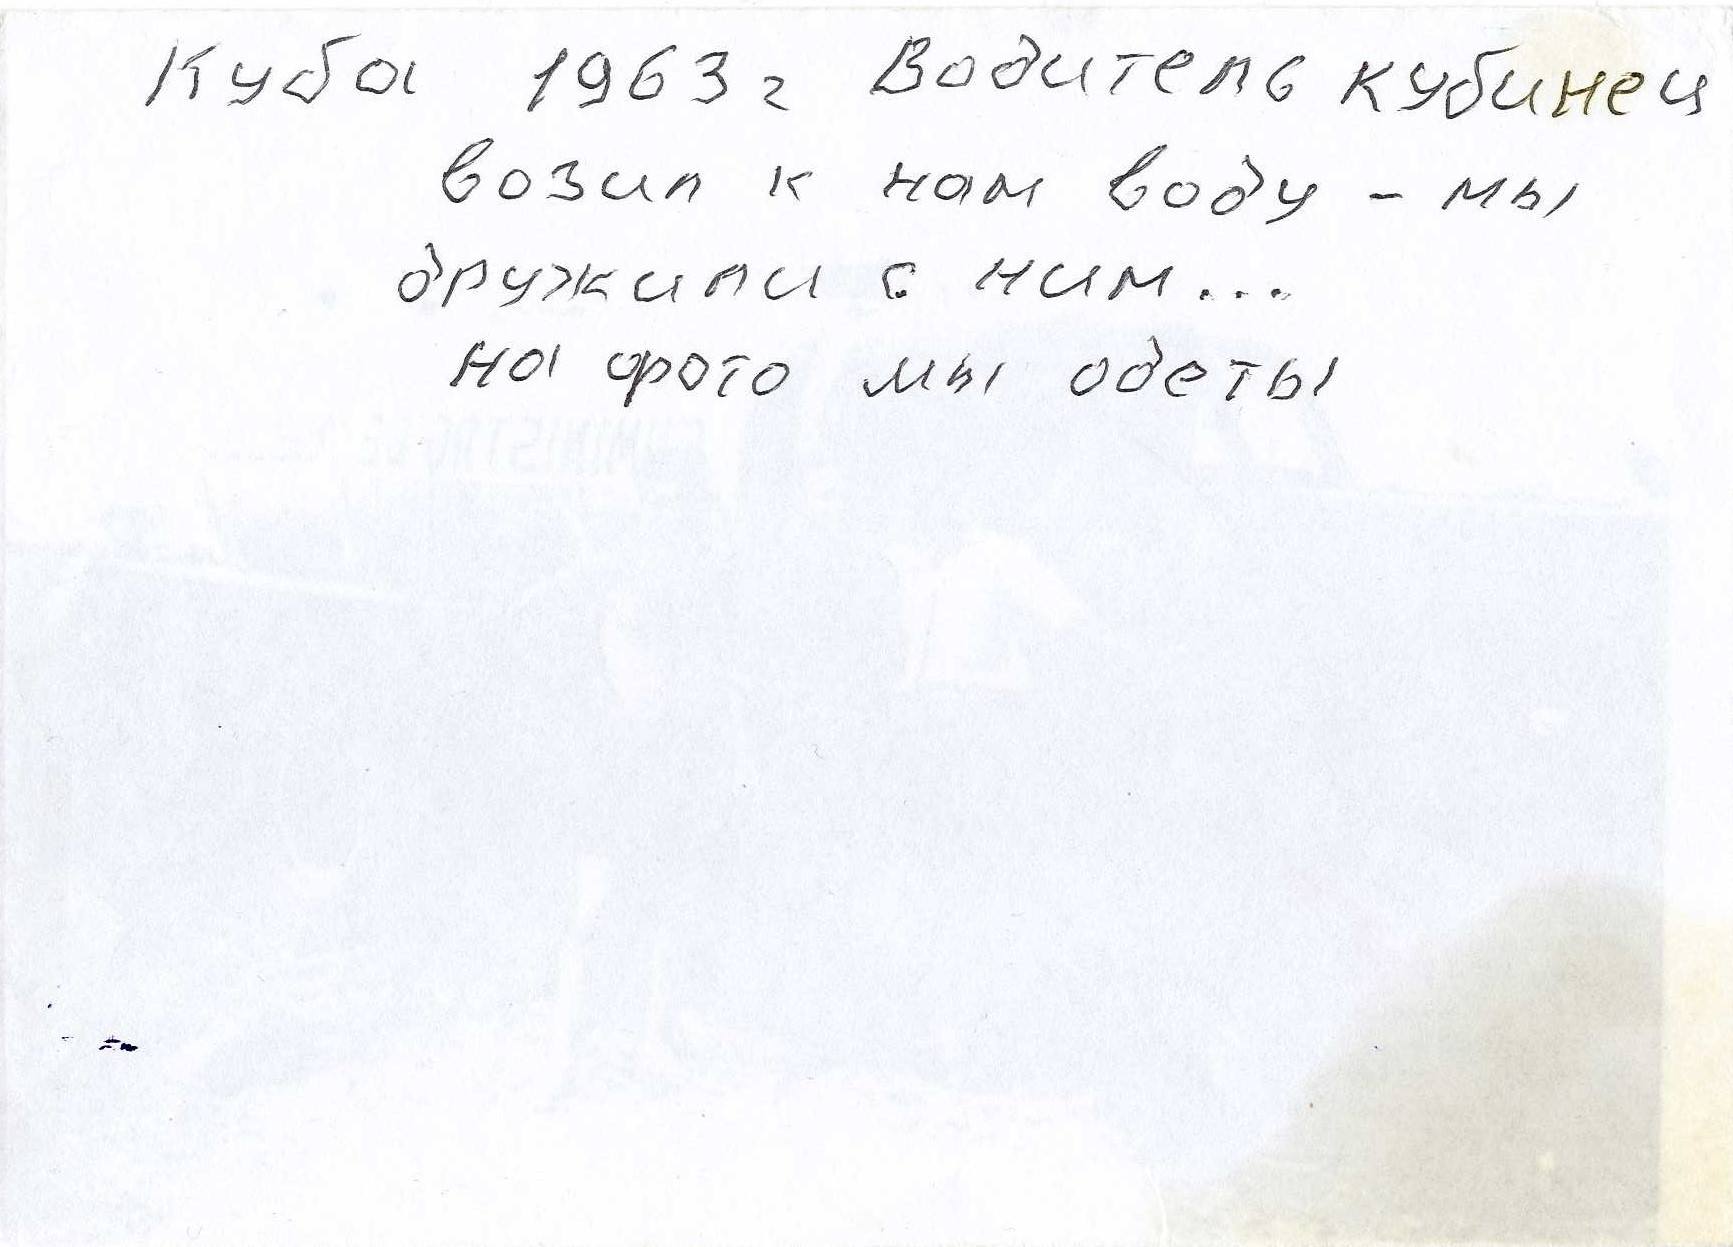 Куба 1963г Водитель кубинец
возил к нам воду - мы
дружили с ним...
на фото мы одеты